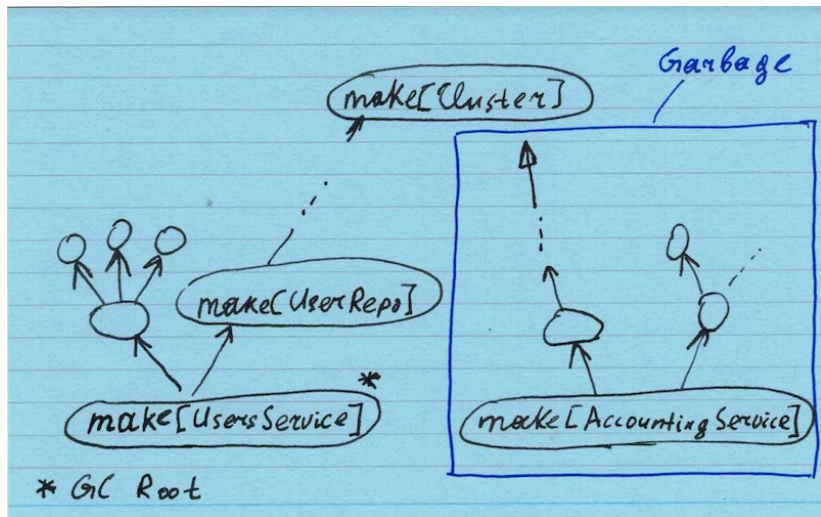 Garbage
make[Cluster]
make[UserRepo]
make[UsersService]
*
make[AccountingService]
* GC Root